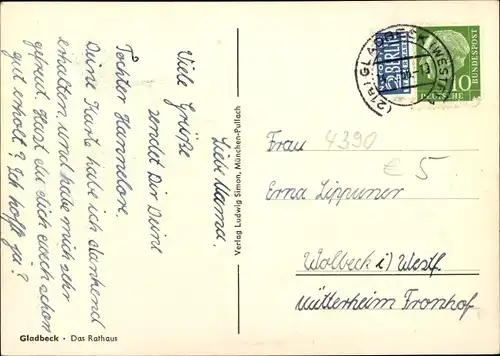 Liebe Mama.
Viele Grüße
sendet Dir Deine
Tochter Hannelore.
Deine Karte habe ich dankend
erhalten, und habe mich sehr
gefreut. Hast du dich auch schon
gut erholt? Ich hoffe ja?
Gladbeck · Das Rathaus
Verlag Ludwig Simon, München-Pullach
(21a) GLADBECK (WESTF)
BERLIN
2
10
DEUTSCHE BUNDESPOST
4390
€ 5
Frau
Erna Lippuner
Wolbeck i/ Westf.
Mütterheim Fronhof